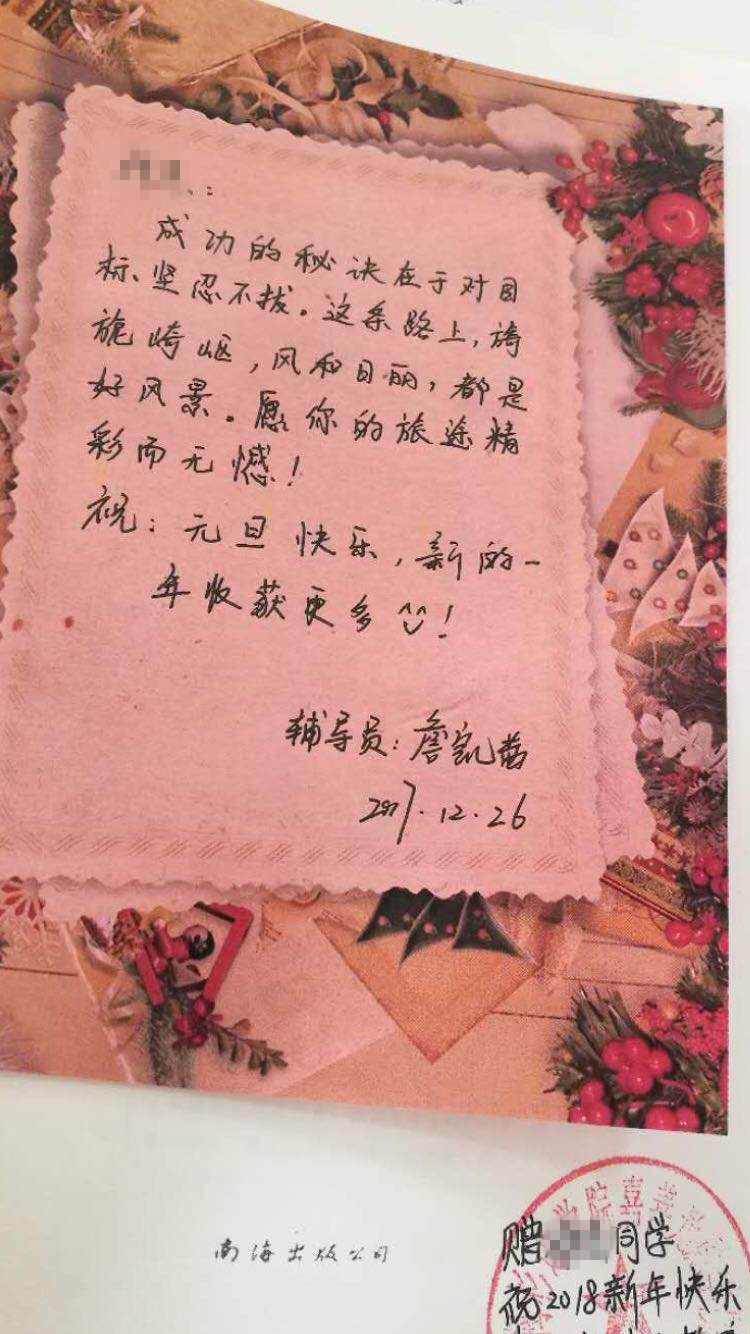 ：
成功的秘诀在于对目
标、坚忍不拔。这条路上，旖
旎崎岖，风和日丽，都是
好风景。愿你的旅途精
彩而无憾！
祝：元旦快乐，新的一
年收获更多^^！
辅导员：詹凯茜
2017.12.26
南海出版公司
学院喜
赠 同学
祝2018新年快乐